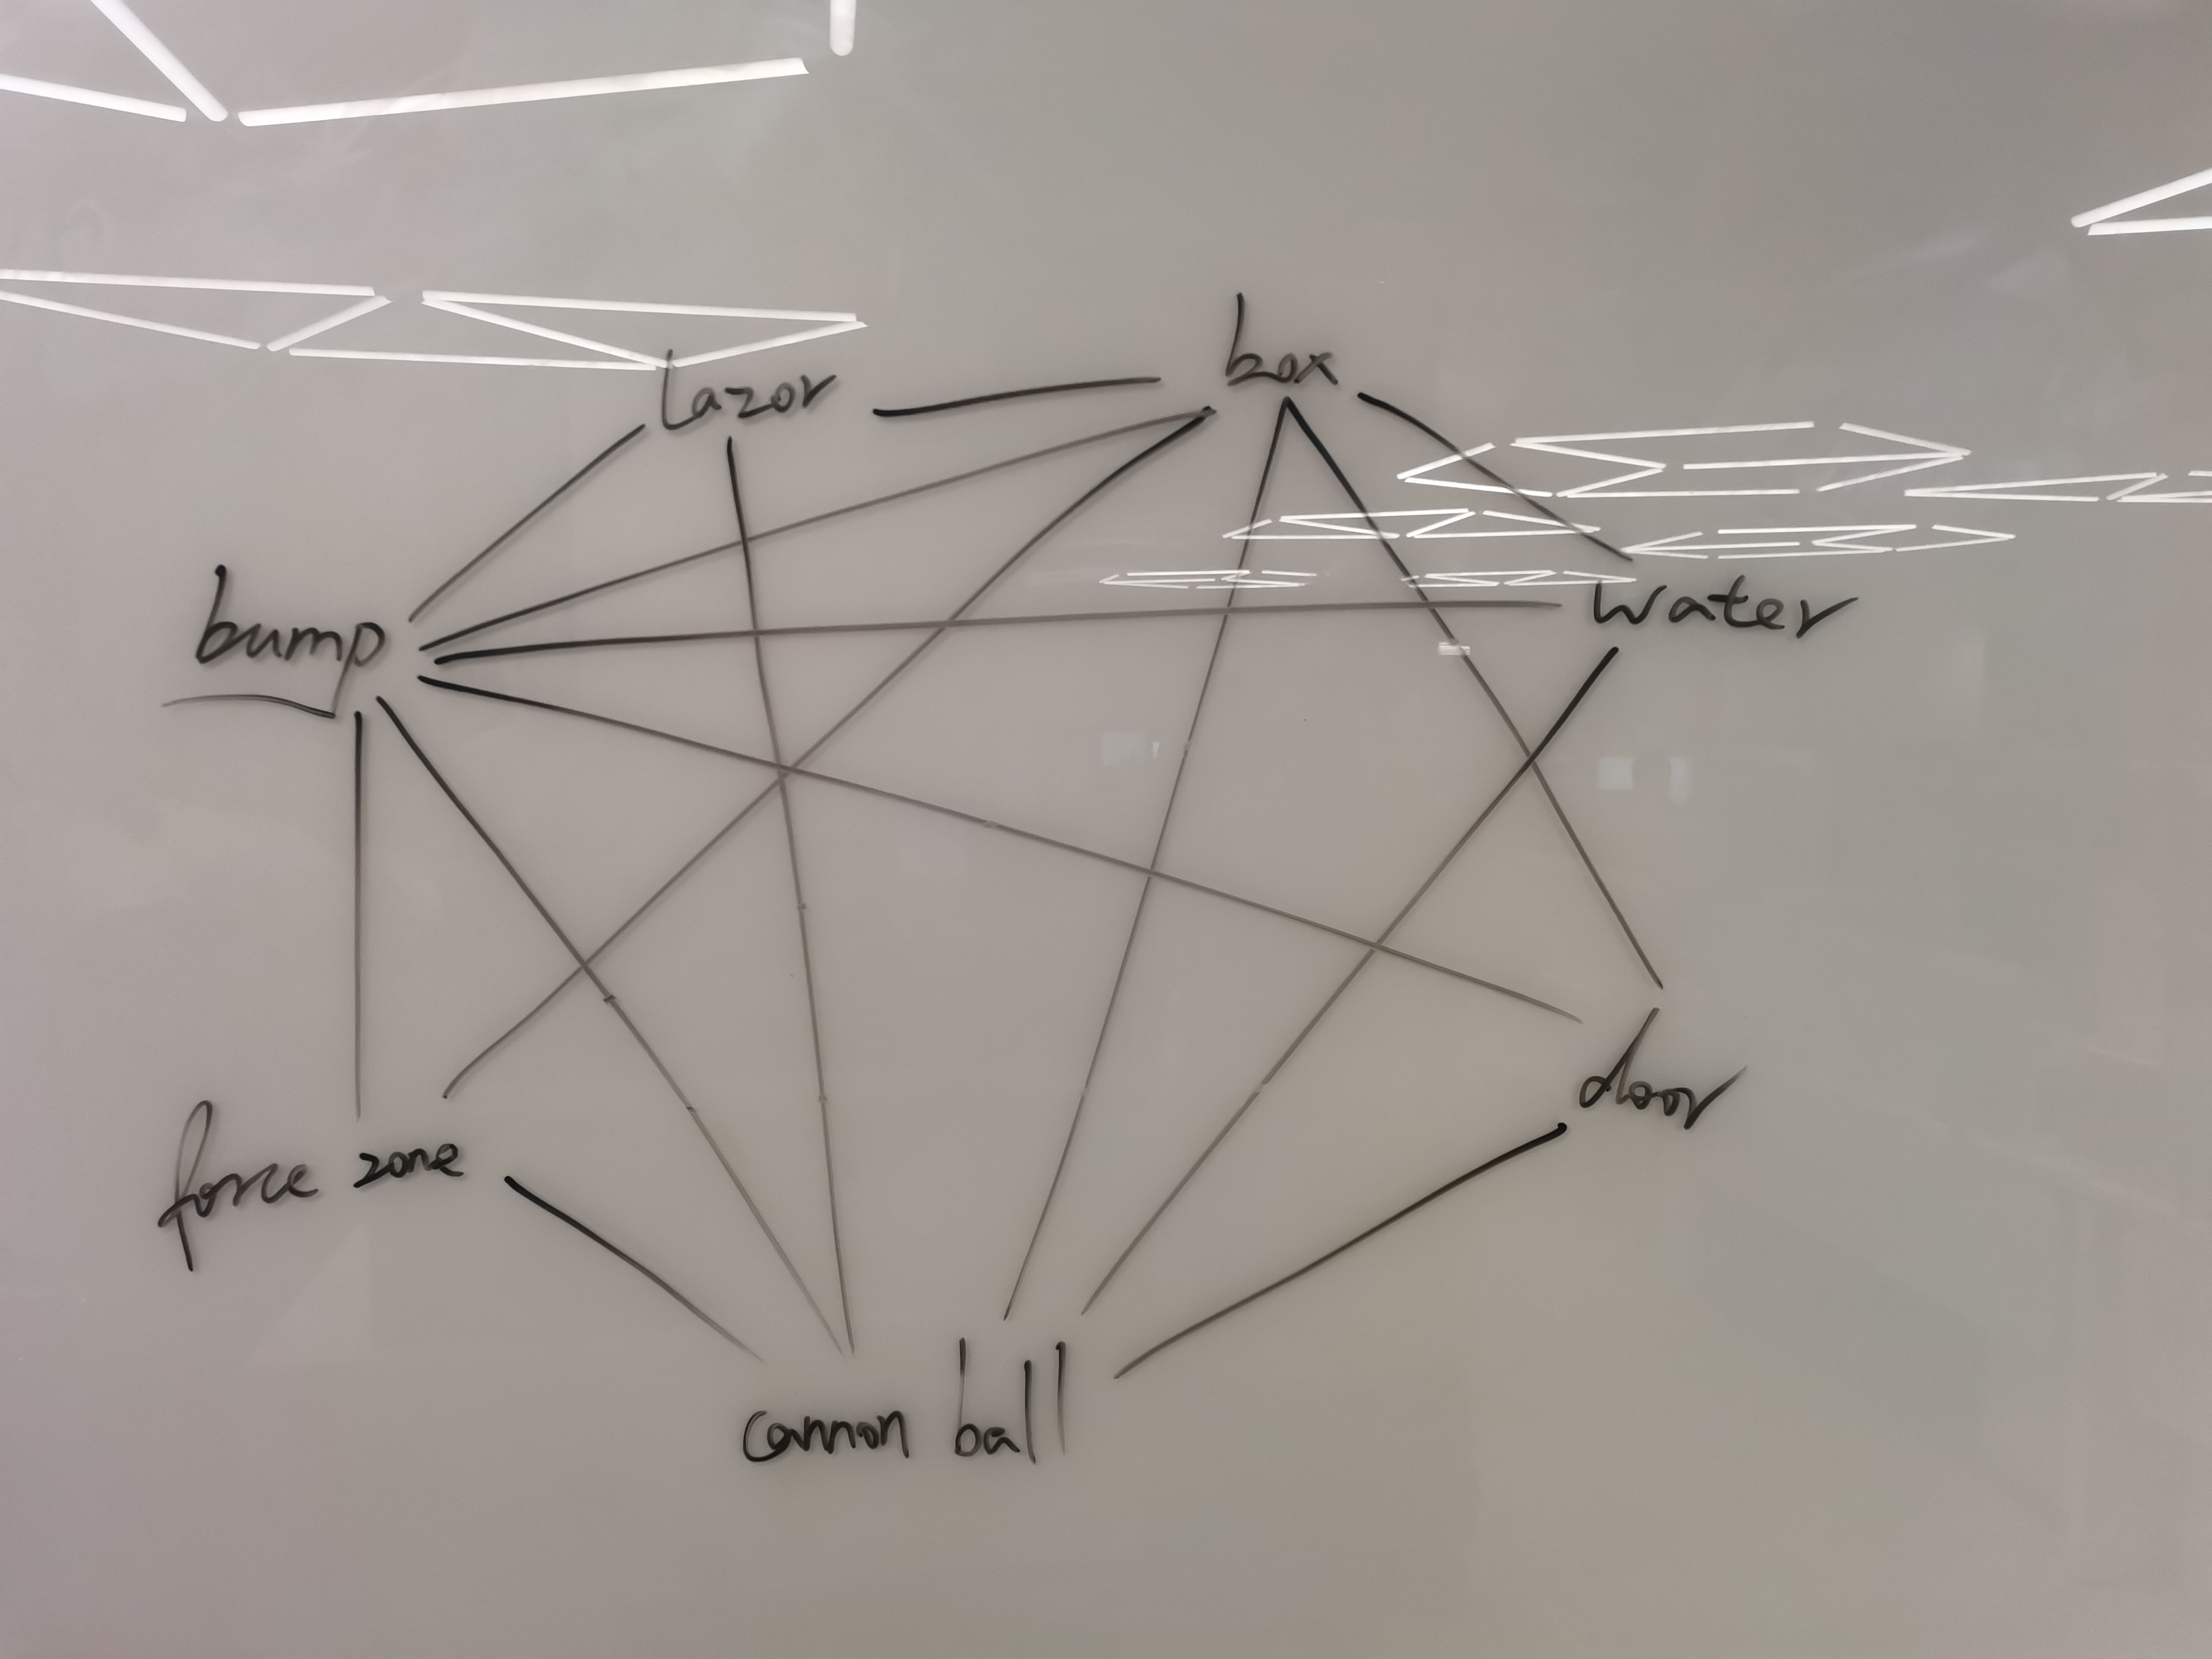 lazor
box
bump
water
door
force zone
cannon ball